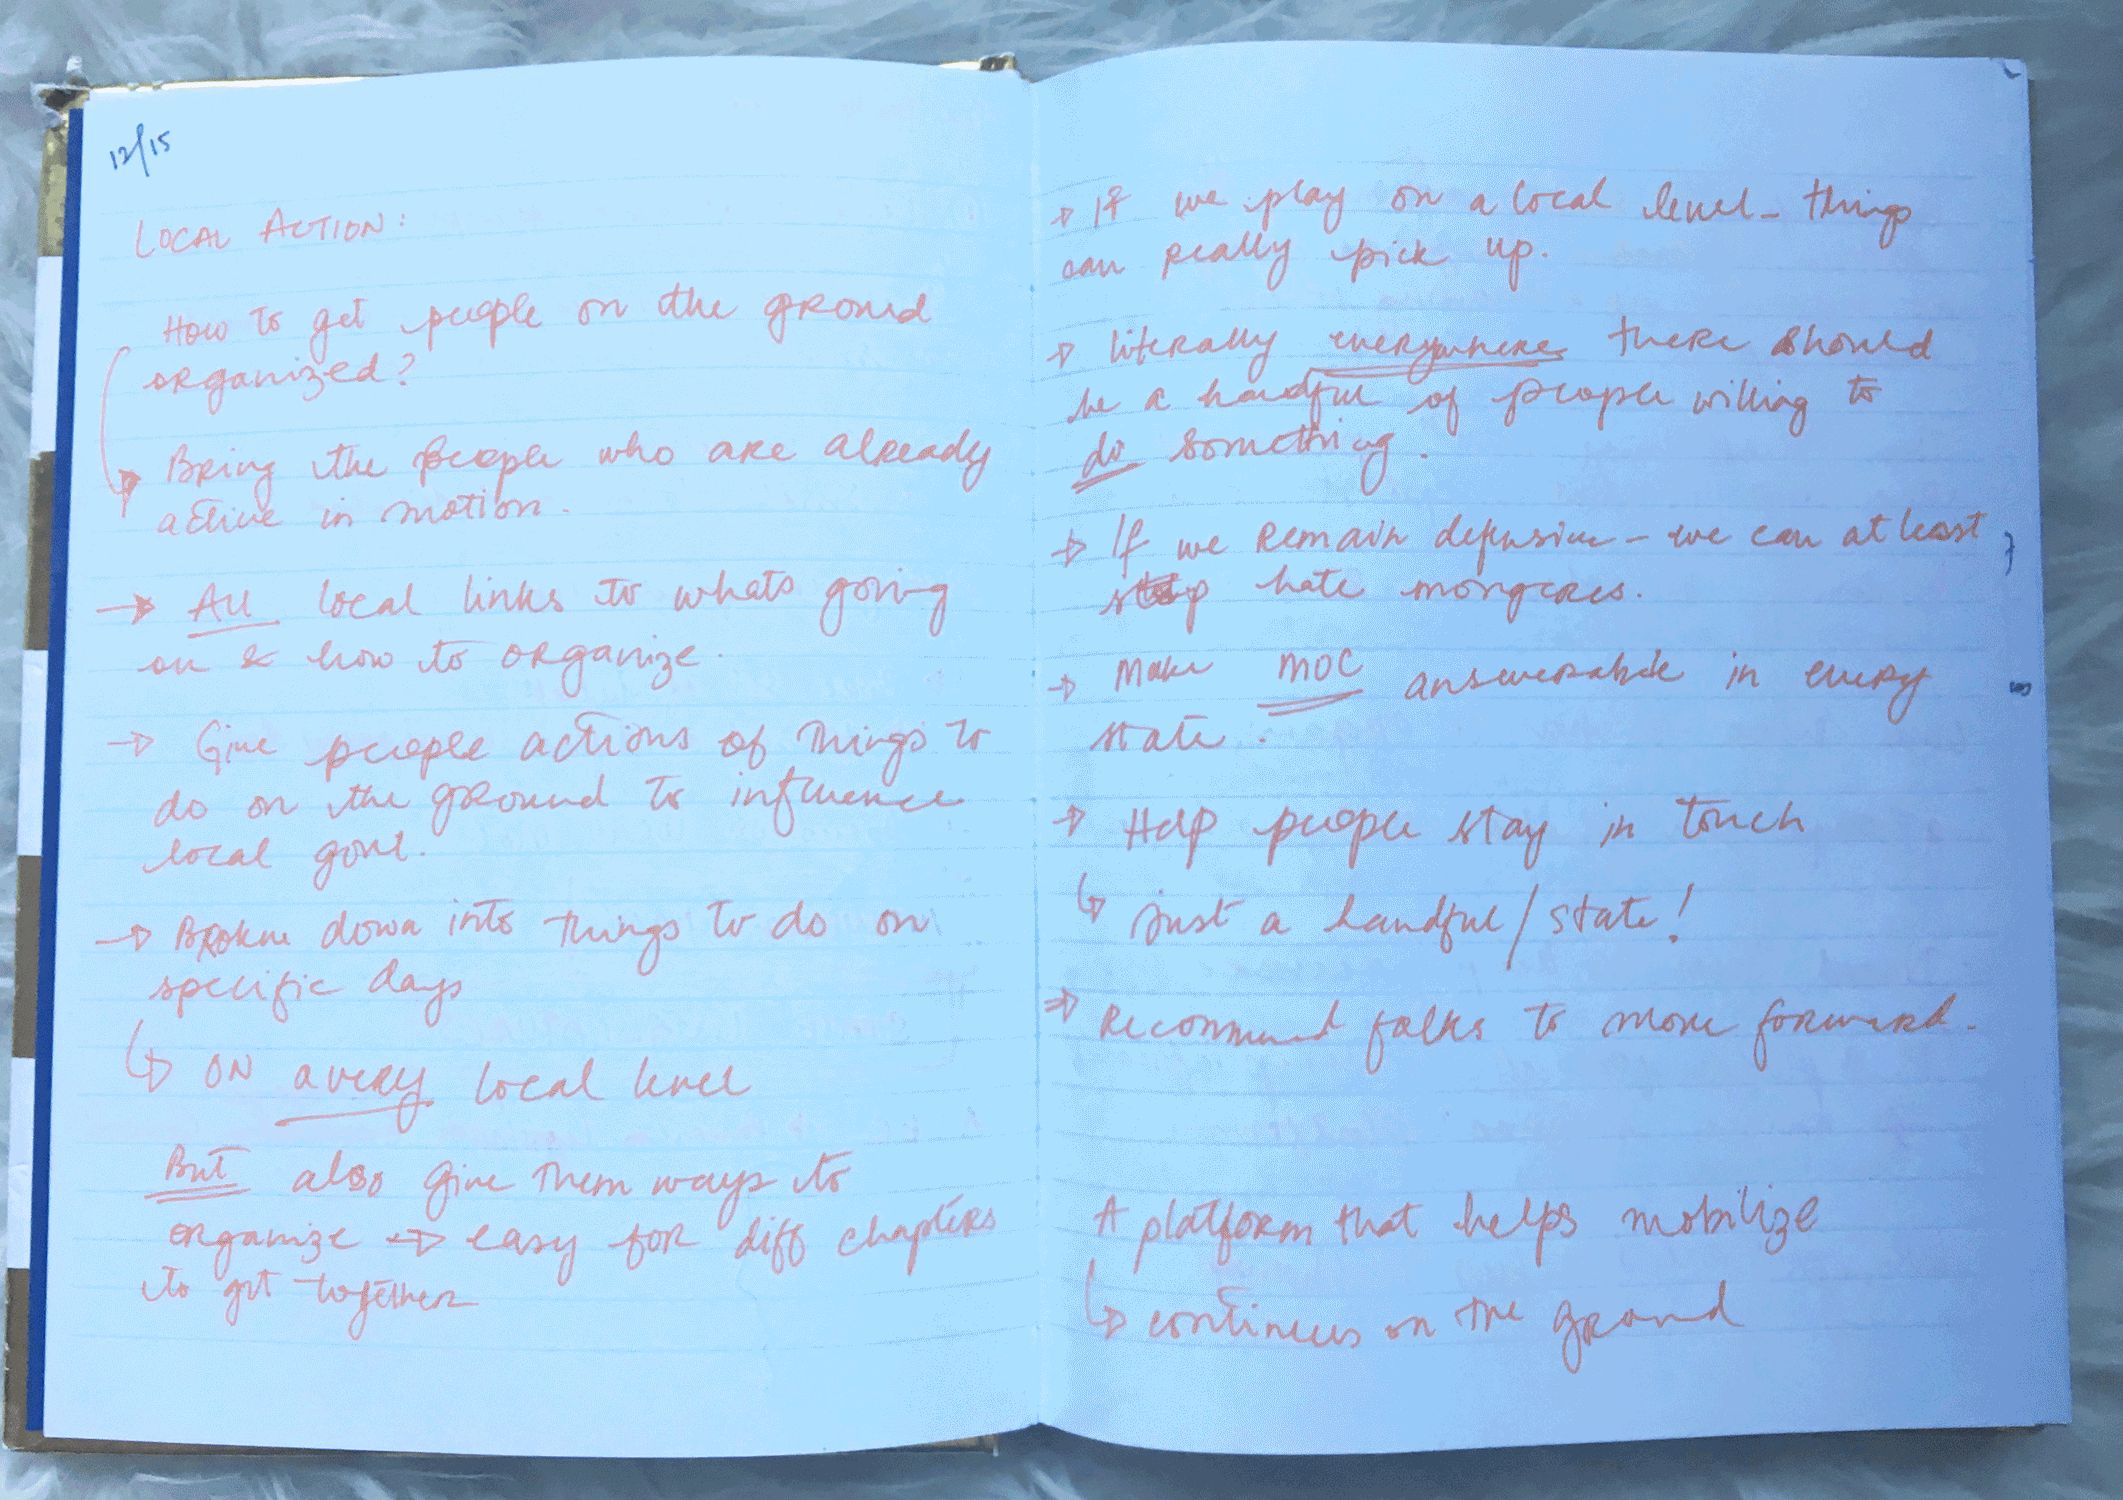 12/15
LOCAL ACTION:
How to get people on the ground
organized?
→ Bring the people who are already
active in motion.
→ All local links to whats going
on & how to organize.
→ Give people actions of things to
do on the ground to influence
local govt.
→ Broken down into things to do on
specific days
↳ ON a very local level
But also give them ways to
organize → easy for diff chapters
to get together
→ If we play on a local level - things
can really pick up.
→ literally everywhere there should
be a handful of people willing to
do something.
→ If we remain defensive - we can at least
stop hate mongers.
→ Make MOC answerable in every
state.
→ Help people stay in touch
↳ just a handful / state!
⇒ Recommend folks to move forward.
A platform that helps mobilize
↳ continues on the ground